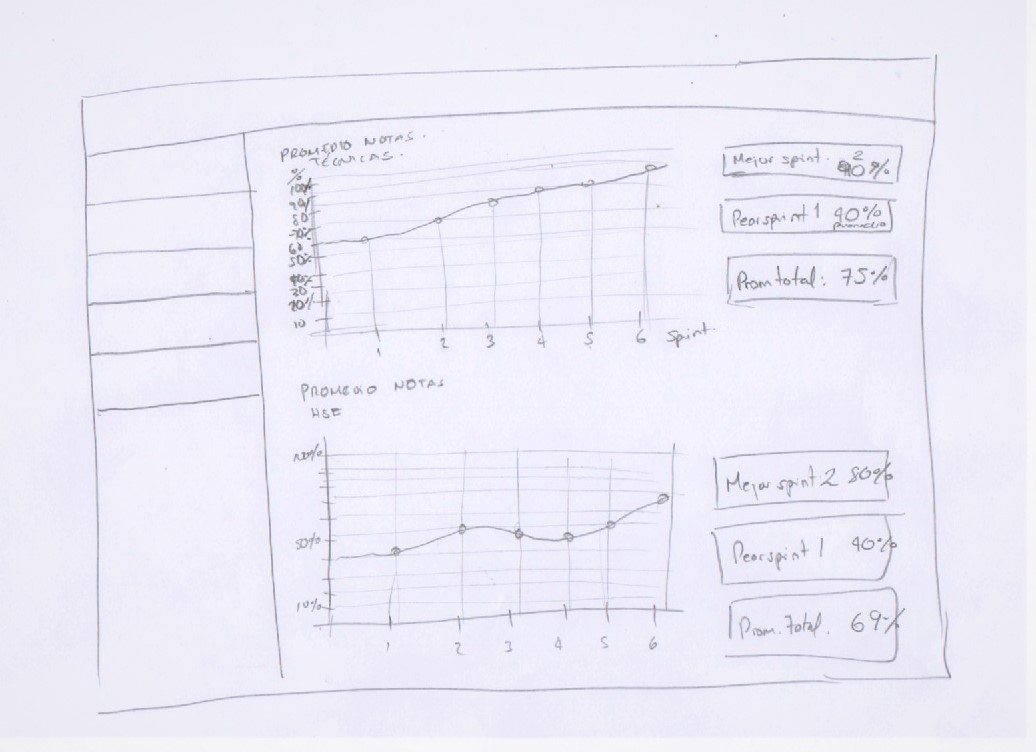 PROMEDIO NOTAS.
TECNICAS.
%
100%
90%
80
70%
60
50%
40%
30
20%
10
1 2 3 4 5 6 Sprint.
Mejor sprint. 2
90%
Peor sprint 1 40%
promedio
Prom total: 75%
PROMEDIO NOTAS
HSE
100%
50%
10%
1 2 3 4 5 6
Mejor sprint 2 80%
Peor sprint 1 40%
Prom. Total. 69%